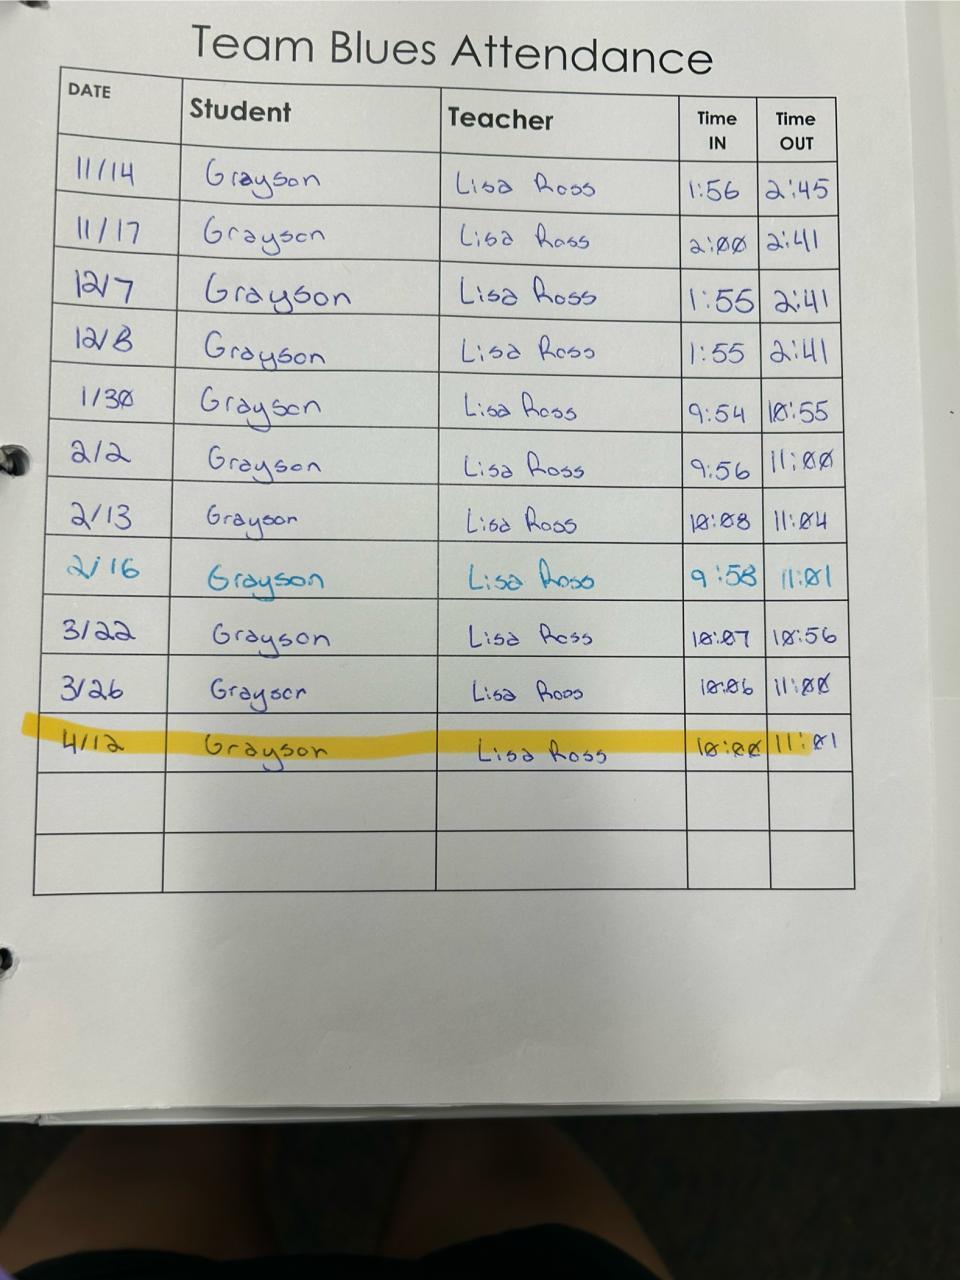 Team Blues Attendance
DATE Student Teacher Time IN Time OUT
11/14 Grayson Lisa Ross 1:56 2:45
11/17 Grayson Lisa Ross 2:00 2:41
12/7 Grayson Lisa Ross 1:55 2:41
12/8 Grayson Lisa Ross 1:55 2:41
1/30 Grayson Lisa Ross 9:54 10:55
2/2 Grayson Lisa Ross 9:56 11:00
2/13 Grayson Lisa Ross 10:08 11:04
2/16 Grayson Lisa Ross 9:58 11:01
3/22 Grayson Lisa Ross 10:07 10:56
3/26 Grayson Lisa Ross 10:06 11:00
4/12 Grayson Lisa Ross 10:00 11:01